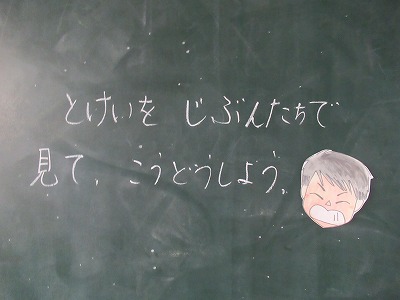 とけいを じぶんたちで
見て、こうどうしよう。